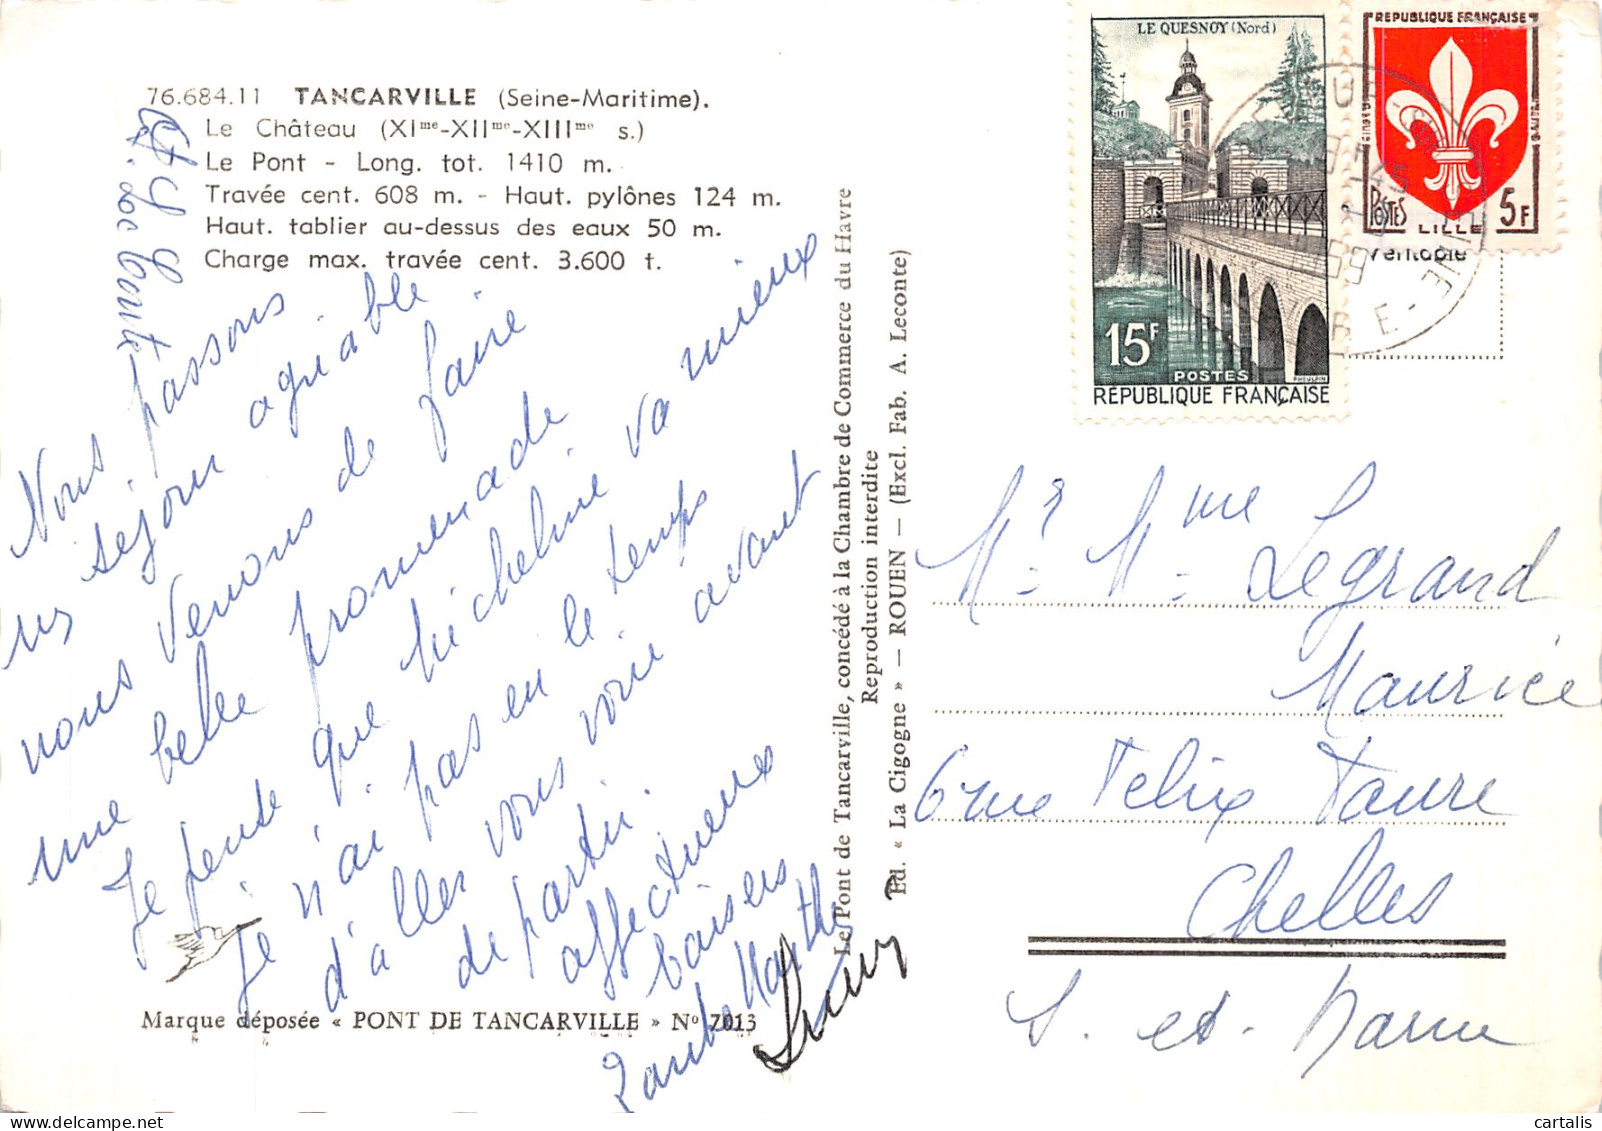 76.684.11 TANCARVILLE (Seine-Maritime).
Le Château (XIme-XIIme-XIIIme s.)
Le Pont - Long. tot. 1410 m.
Travée cent. 608 m. - Haut. pylônes 124 m.
Haut. tablier au-dessus des eaux 50 m.
Charge max. travée cent. 3.600 t.
Nous passons
un séjour agréable
nous venons de faire
une belle promenade
Je pense que Micheline va mieux
Je n'ai pas eu le temps
d'aller vous voir avant
de partir.
affectueux
baisers
Marthe
Marque déposée « PONT DE TANCARVILLE » No 7013
Le Pont de Tancarville, concédé à la Chambre de Commerce du Havre
Reproduction interdite
Ed. « La Cigogne » — ROUEN — (Excl. Fab. A. Leconte)
LE QUESNOY (Nord)
15F
POSTES
RÉPUBLIQUE FRANÇAISE
REPUBLIQUE FRANÇAISE
POSTES
LILLE
5F
véritable
Mr. Mme Legrand
Maurice
6 rue Felix Faure
Chelles
S. et. Marne
cartalis